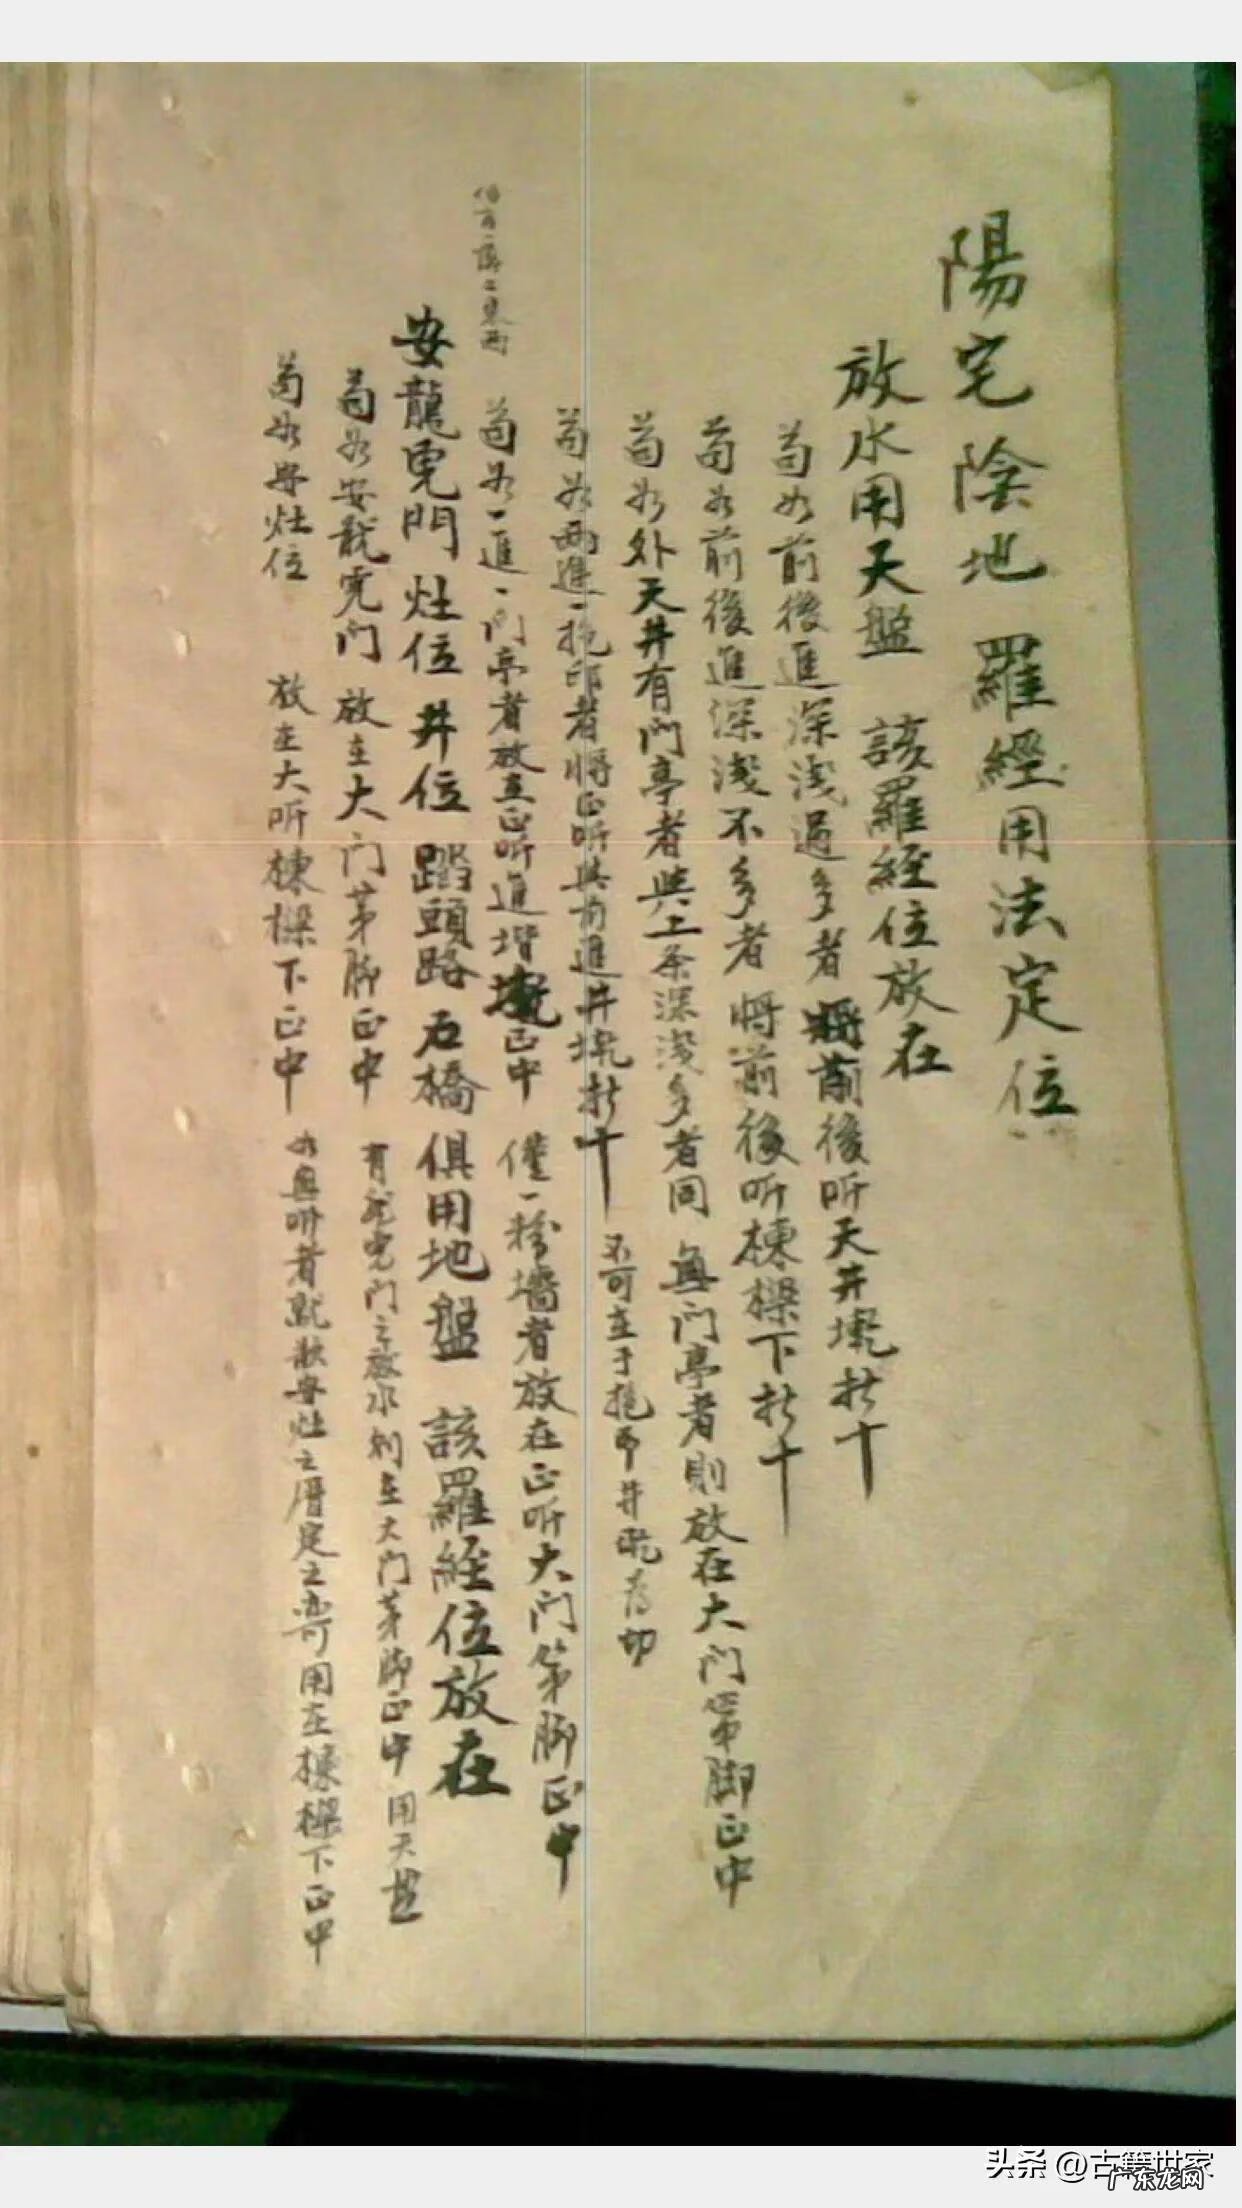 陽宅陰地羅經用法定位
放水用天盤 該羅經位放在
苟如前後進深浅過多者將前後听天井墘拆十
苟如前後進深浅不多者將前後听棟樑下拆十
苟如外天井有门亭者與上条深浅多者同 無门亭者則放在大门第脚正中
苟如兩進一抱印者將正听與前進井墘拆十 不可在于抱印井墘为切
苟如一進一门亭者放在正听進堦墘正中 僅一粉墻者放在正听大门第脚正中
安龍虎門 灶位 井位 踏頭路 石橋 俱用地盤 該羅經位放在
苟如安龍虎门 放在大门第脚正中 有龍虎门之放水列在大门第脚正中用天盘
苟如安灶位 放在大听棟樑下正中 如無听者就欲安灶之厝定之亦可用在棟樑下正中
头条 @古籍世家
广东龙网